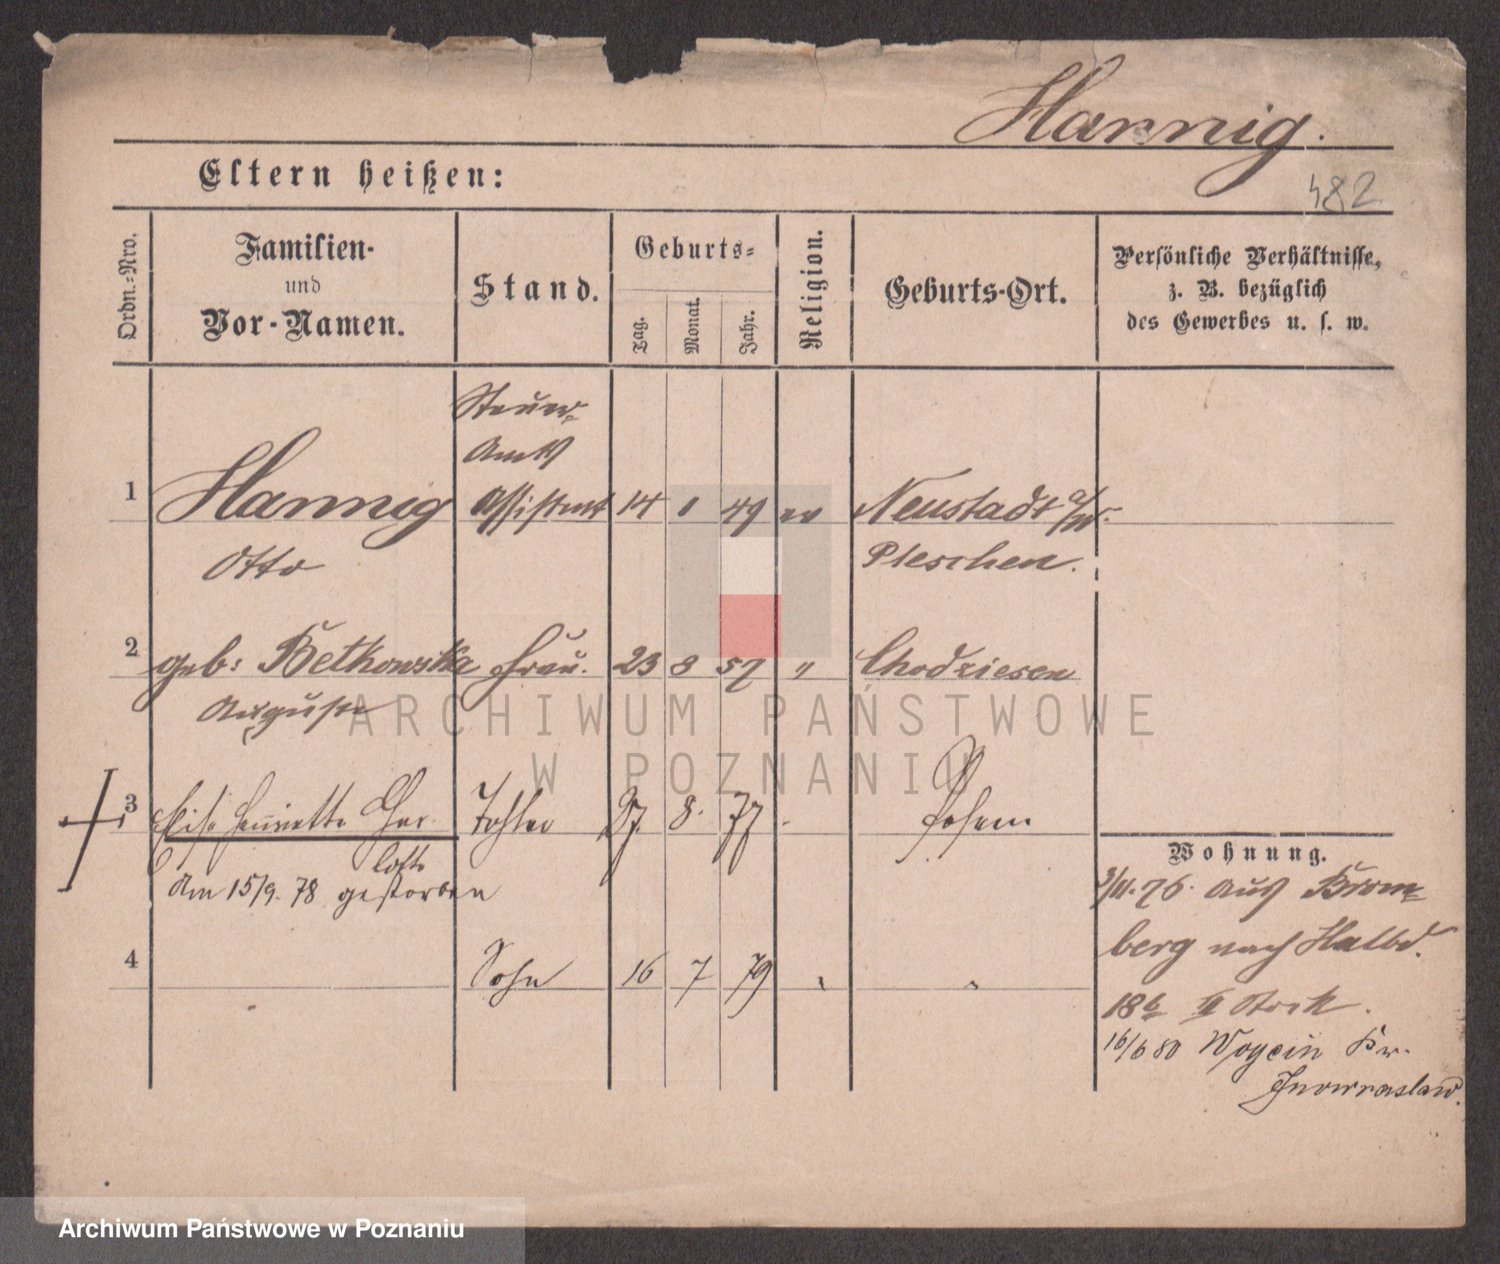 Hannig.
482
Eltern heißen:
Ordn.-Nro.
Familien-
und
Vor-Namen.
Stand.
Geburts-
Tag.
Monat.
Jahr.
Religion.
Geburts-Ort.
Persönliche Verhältnisse,
z. B. bezüglich
des Gewerbes u. s. w.
Steuer-
Amts
1 Hannig Assistent 14 1 49 ev Neustadt a/W.
Otto Pleschen.
2 geb: Betkowska Frau. 23 8 57 " Chodziesen
Auguste
3 Elise Henriette Char Tochter 27. 8. 77 Posen
lotte
Am 15/9. 78 gestorben
4 Sohn 16 7 79 " "
Wohnung.
3/11. 76. aus Brom-
berg nach Halbd.
18b II Stock.
16/6 80 Woycin Kr.
Inowraslaw.
ARCHIWUM PAŃSTWOWE
W POZNANIU
Archiwum Państwowe w Poznaniu